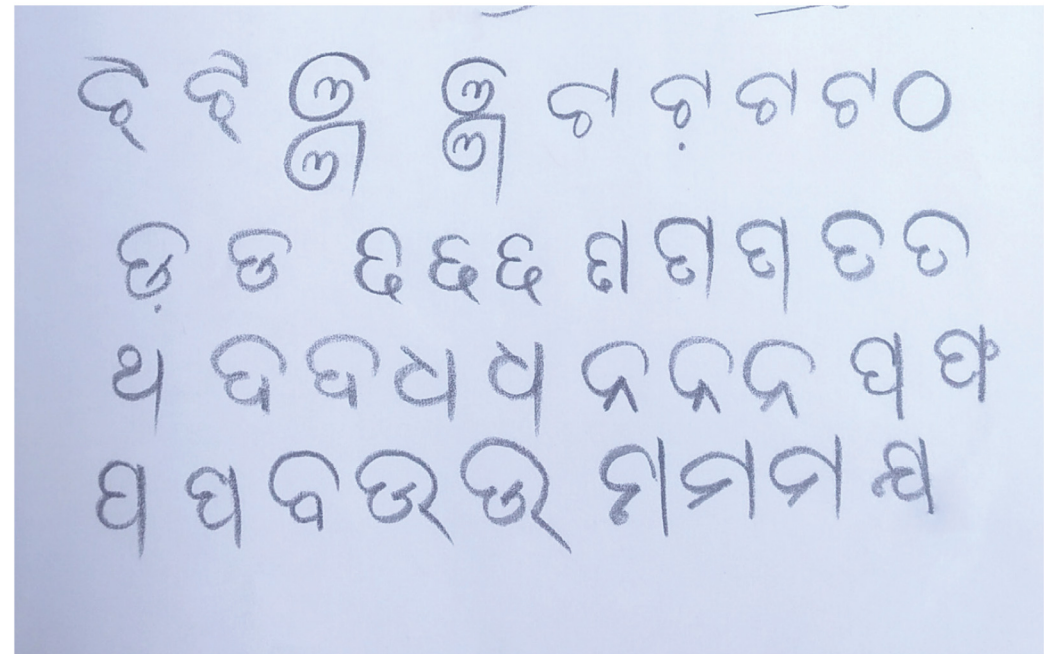 ଝ ଝ ଞ ଞ ଟ ଟ଼ ଟ ଟ ଠ
ଡ଼ ଡ ଢ ଢ ଢ ଣ ଣ ଣ ତ ତ
ଥ ଦ ଦ ଧ ଧ ନ ନ ନ ପ ଫ
ପ ପ ବ ଭ ଭ ମ ମ ମ ଯ